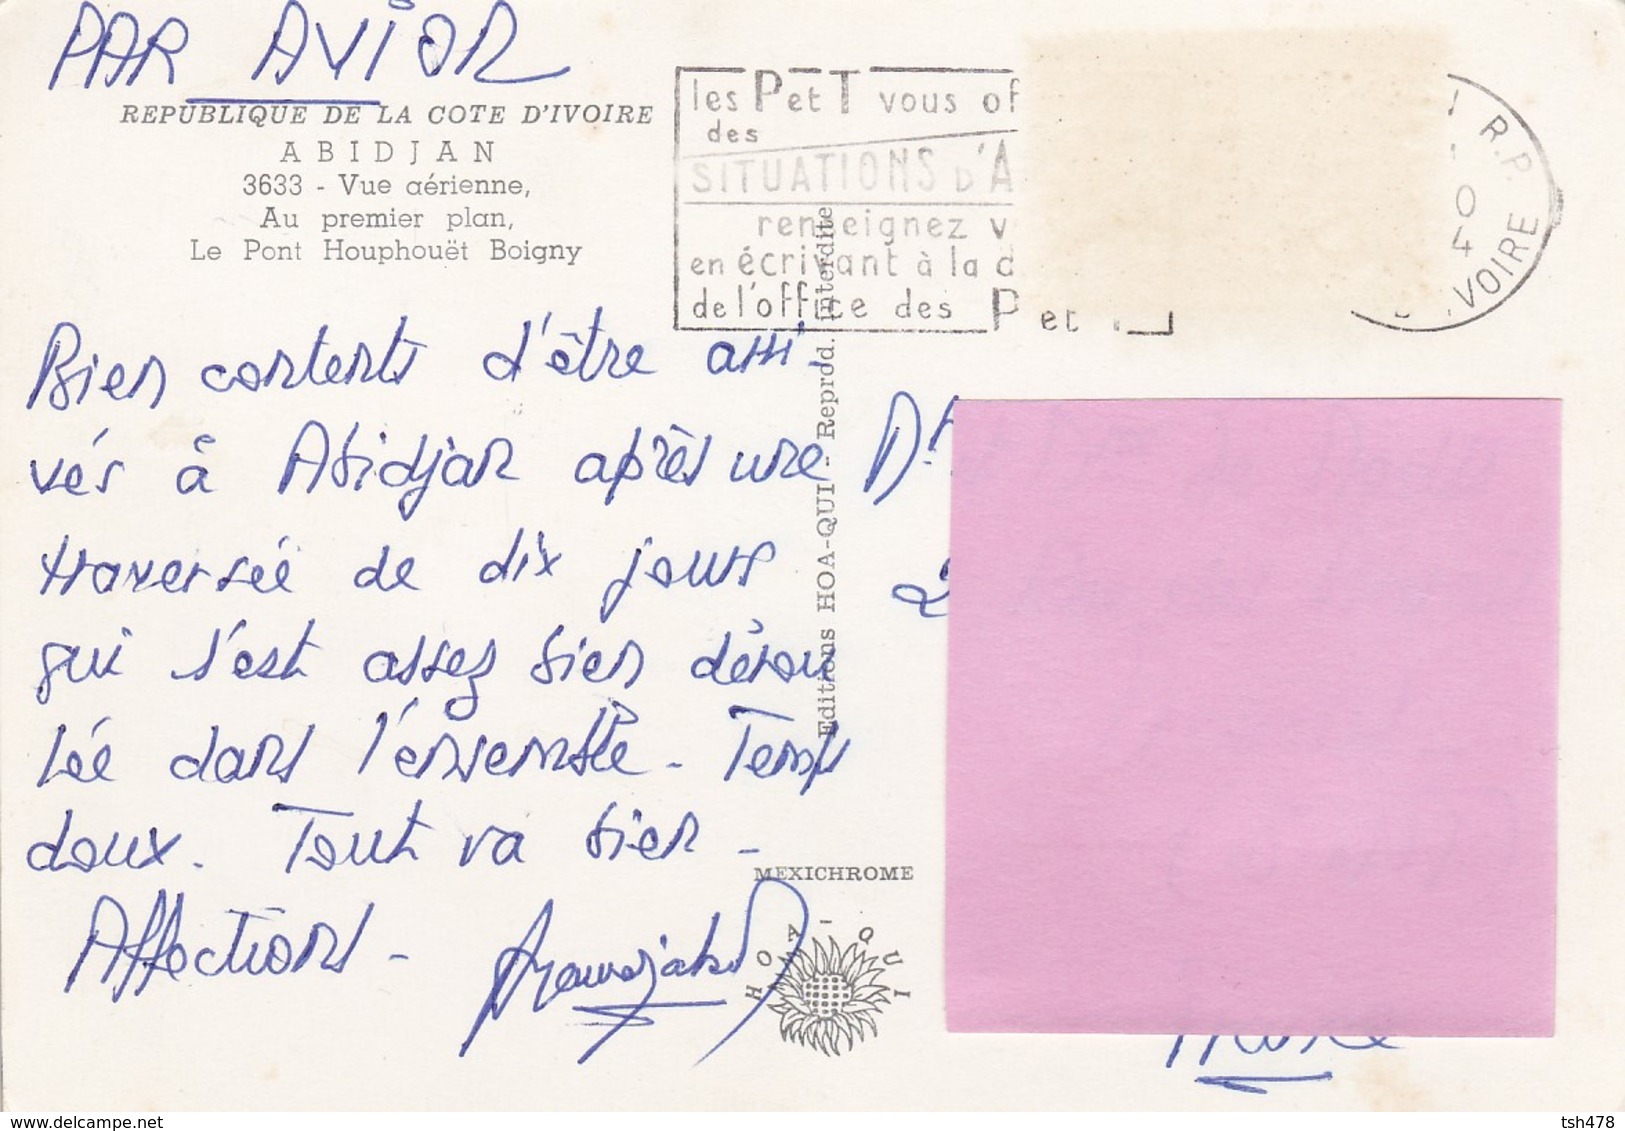 PAR AVION
REPUBLIQUE DE LA COTE D'IVOIRE
ABIDJAN
3633 - Vue aérienne,
Au premier plan,
Le Pont Houphouët Boigny
les P et T vous of
des
SITUATIONS D'A
renseignez v
en écrivant à la d
de l'office des P et T
R.P.
0
4
VOIRE
Bien contents d'être arri-
vés à Abidjan après une
traversée de dix jours
qui s'est assez bien dérou
lée dans l'ensemble - Temps
doux. Tout va bien -
Affections -
Editions HOA-QUI - Reprod. interdite
MEXICHROME
HOA-QUI
delcampe.net
tsh478